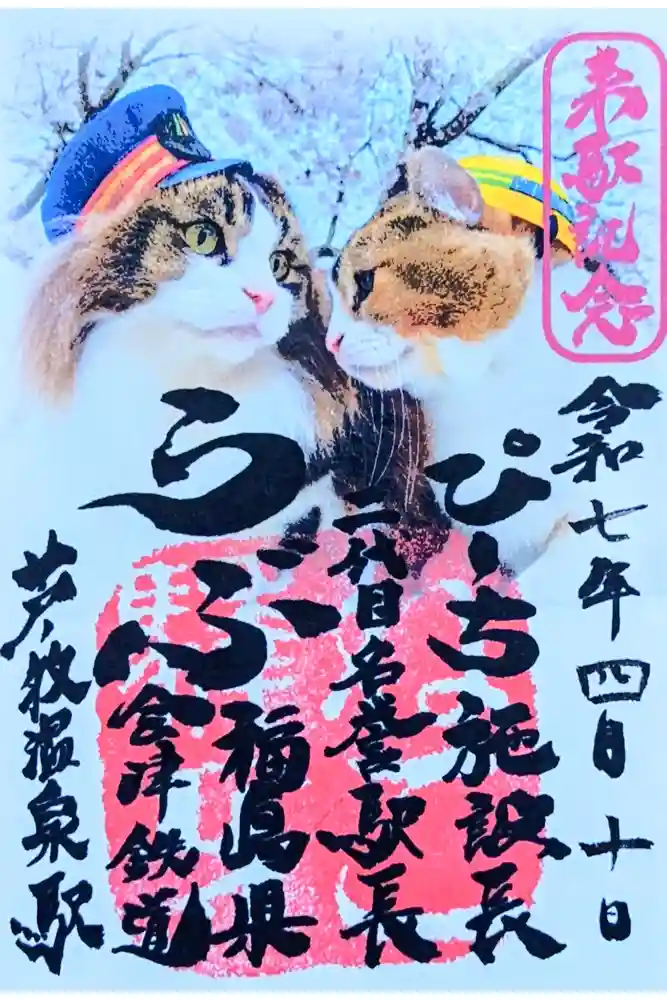 来駅記念
令和七年四月十日
ぴーち施設長
二代目名誉駅長
らぶ
福島県
会津鉄道
芦ノ牧温泉駅